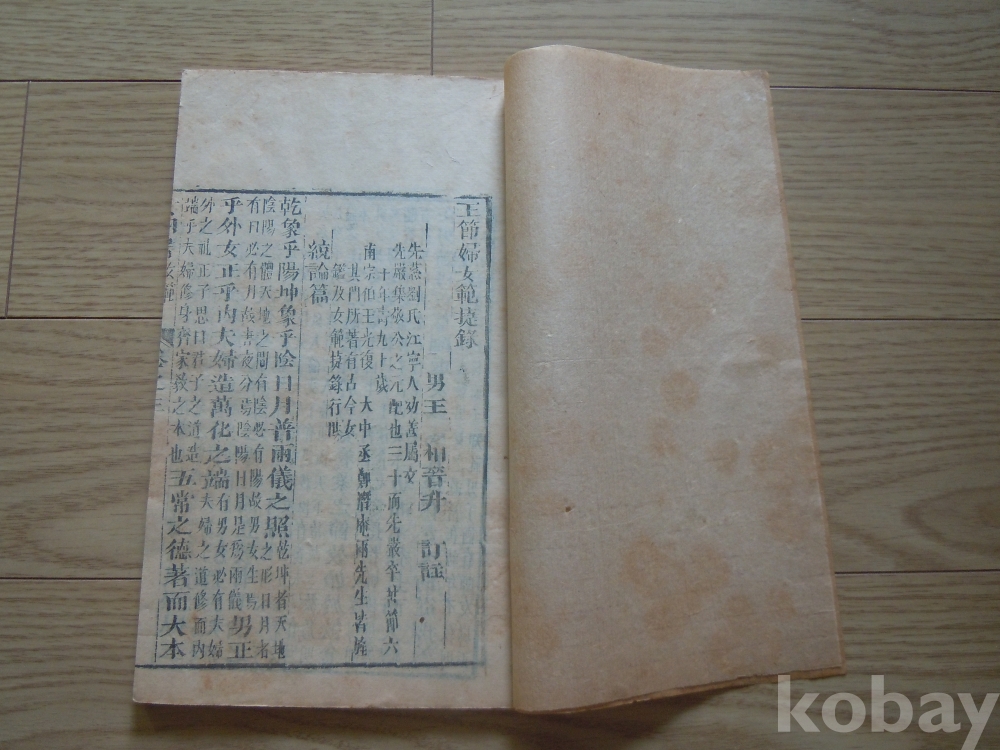 王節婦女範捷錄
男王 相晉升 訂註
先慈劉氏江寧人幼善屬文
先嚴集敬公之元配也三十而先嚴卒苦節六
十年壽九十歲
南宗伯王光復 大中丞鄭潛庵兩先生皆旌
其門所著有古今女
鑑及女範捷錄行世
統論篇
乾象乎陽坤象乎陰日月普兩儀之照 乾坤者天地
陰陽之體天地之間有陰必有陽故男女生焉 之形日月者
有日必有月故晝夜分焉陰陽日月是為兩儀 男正
乎外女正乎內夫婦造萬化之端 有男女必有夫婦
外之祖正子思曰君子之道造 夫婦之道修而內
端乎夫婦修身齊家教之本也 五常之德著而大本
女範
卷之三
kobay